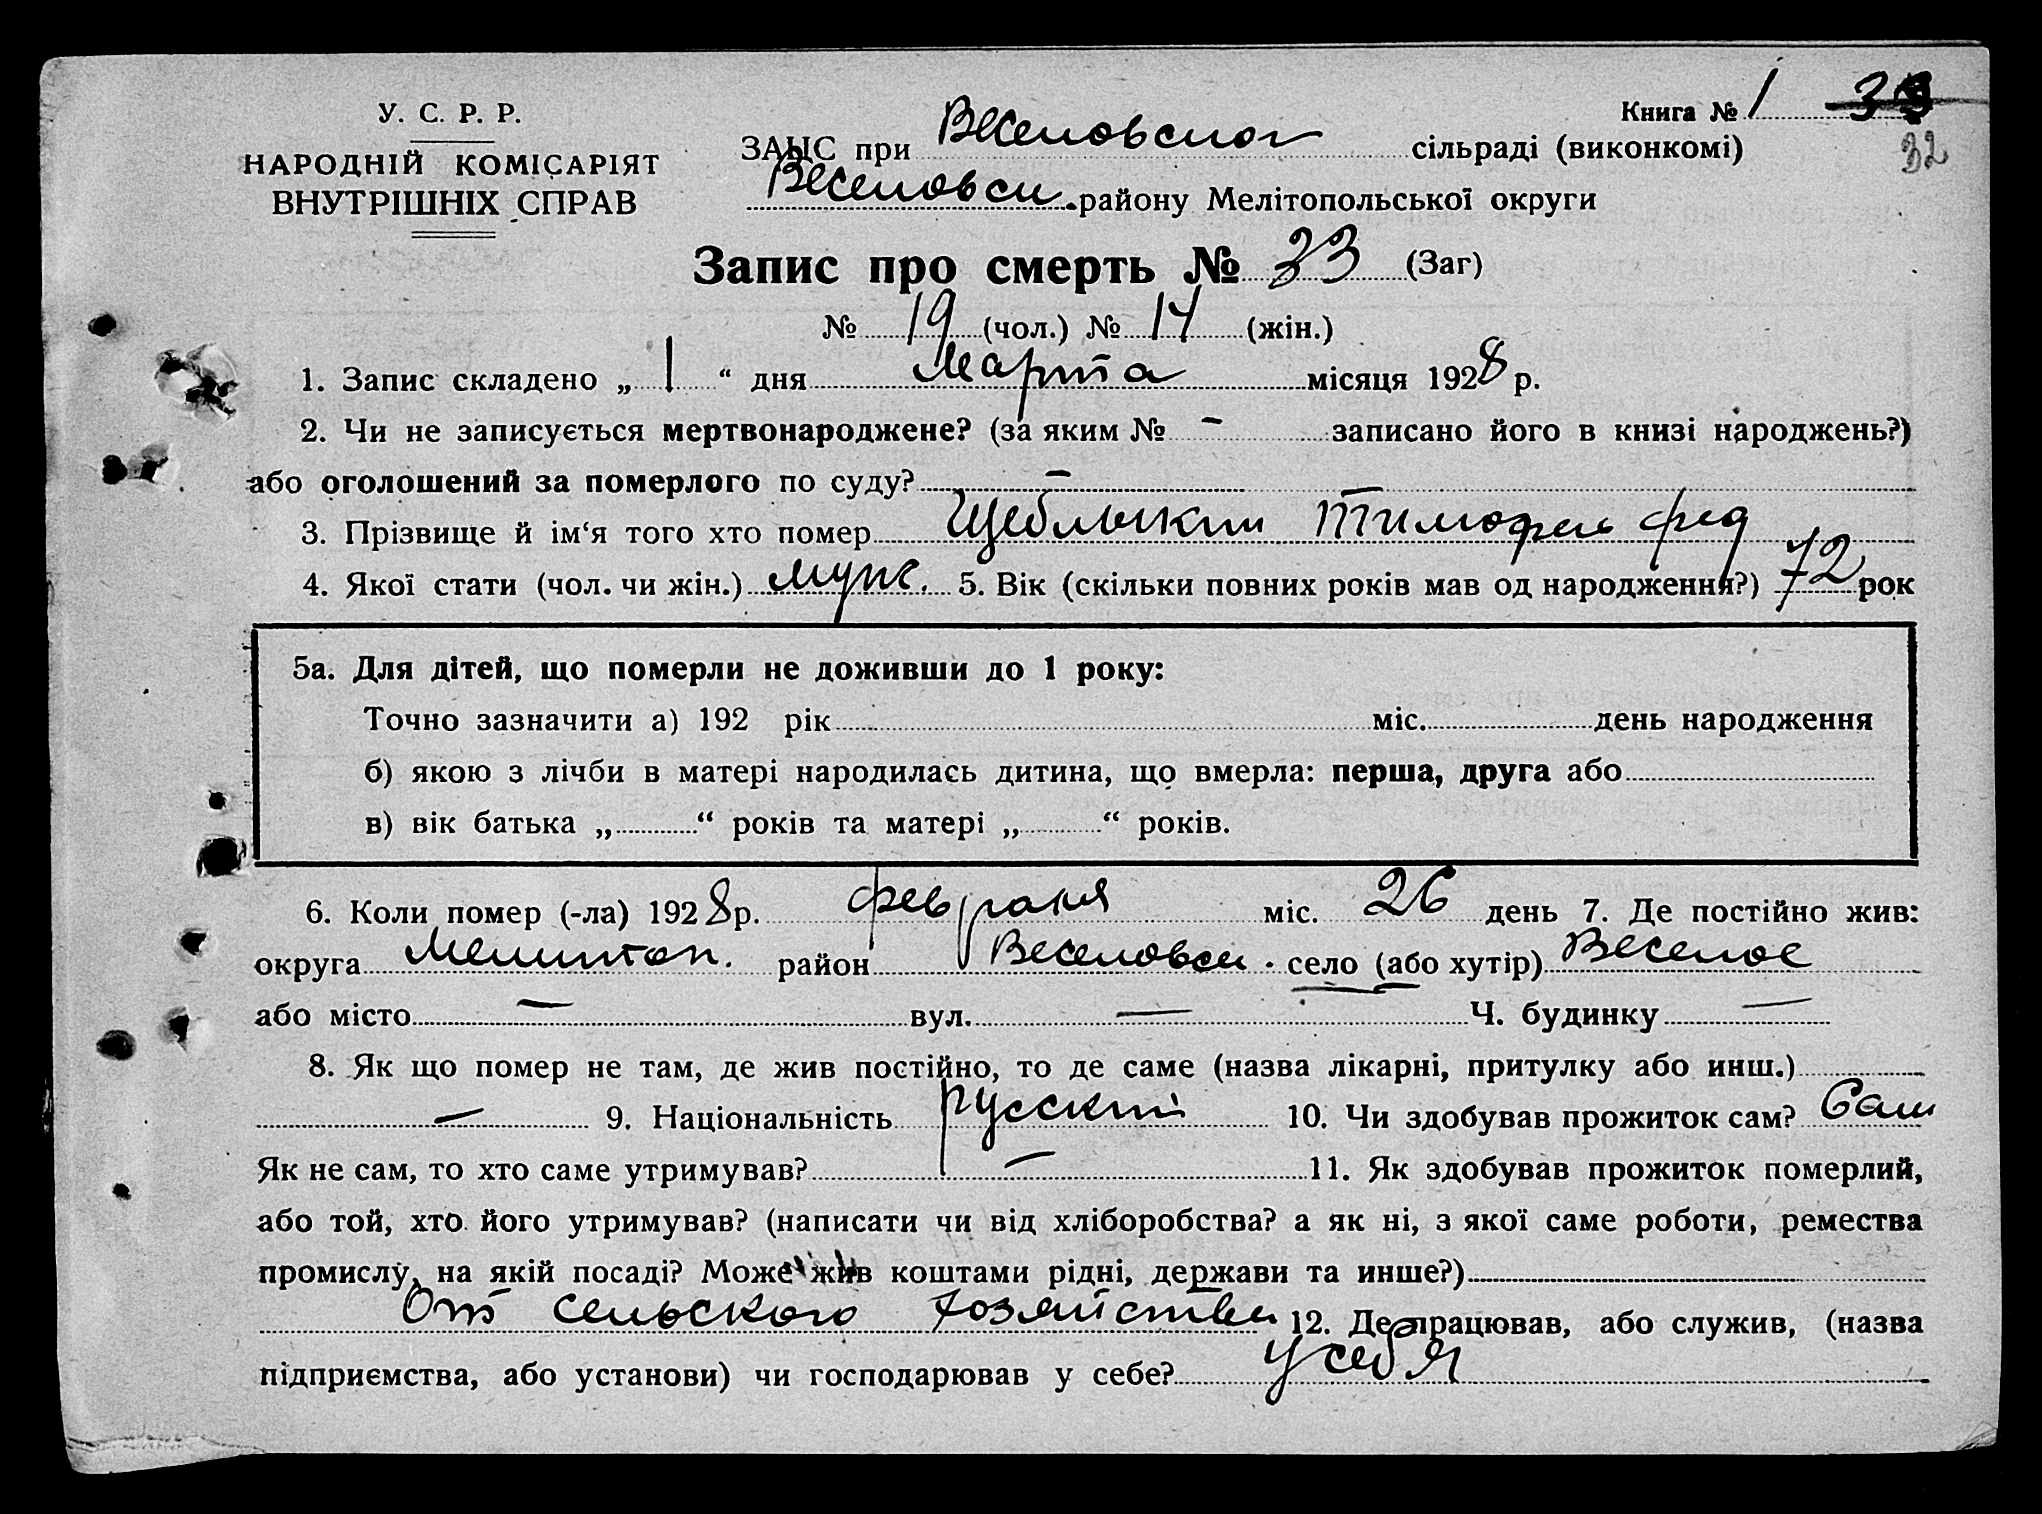 У. С. Р. Р.
НАРОДНІЙ КОМІСАРІЯТ
ВНУТРІШНІХ СПРАВ
Книга № 1
32
ЗАЦС при Веселовской сільраді (виконкомі)
Веселовск. району Мелітопольської округи
Запис про смерть № 33 (Заг)
№ 19 (чол.) № 14 (жін.)
1. Запис складено „ 1 “ дня Марта місяця 1928 р.
2. Чи не записується мертвонароджене? (за яким № – записано його в книзі народжень?)
або оголошений за померлого по суду? –
3. Прізвище й ім‘я того хто помер Щеблыкин Тимофей фед
4. Якої стати (чол. чи жін.) муж. 5. Вік (скільки повних років мав од народження?) 72 рок
5а. Для дітей, що померли не доживши до 1 року:
Точно зазначити а) 192 рік міс. день народження
б) якою з лічби в матері народилась дитина, що вмерла: перша, друга або
в) вік батька „ “ років та матері „ “ років.
6. Коли помер (-ла) 1928 р. февраля міс. 26 день 7. Де постійно жив:
округа Мелитоп. район Веселовск. село (або хутір) Веселое
або місто – вул. – Ч. будинку –
8. Як що помер не там, де жив постійно, то де саме (назва лікарні, притулку або инш.)
– 9. Національність русский 10. Чи здобував прожиток сам? Сам
Як не сам, то хто саме утримував? – 11. Як здобував прожиток померлий,
або той, хто його утримував? (написати чи від хліборобства? а як ні, з якої саме роботи, ремества
промислу, на якій посаді? Може жив коштами рідні, держави та инше?)
От сельского хозяйства 12. Де працював, або служив, (назва
підприємства, або установи) чи господарював у себе? у себя